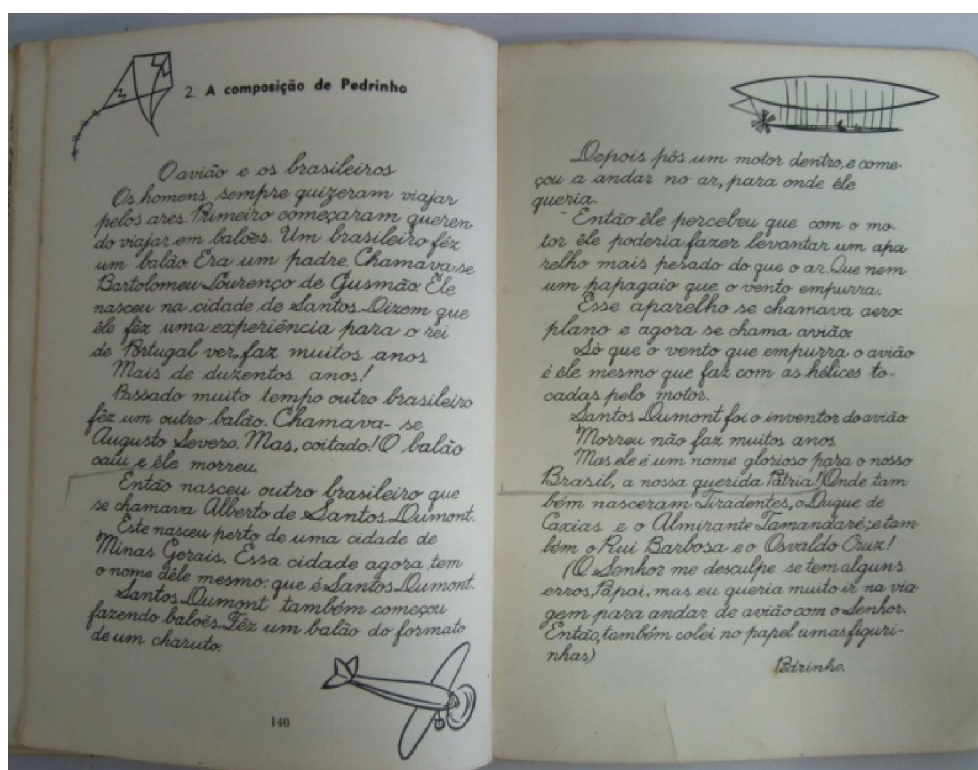 2. A composição de Pedrinho
O avião e os brasileiros
Os homens sempre quizeram viajar
pelos ares. Primeiro começaram queren
do viajar em balões. Um brasileiro fêz
um balão. Era um padre. Chamava-se
Bartolomeu Lourenço de Gusmão. Ele
nasceu na cidade de Santos. Dizem que
êle fêz uma experiência para o rei
de Portugal ver, faz muitos anos
Mais de duzentos anos!
Passado muito tempo outro brasileiro
fêz um outro balão. Chamava-se
Augusto Severo. Mas, coitado! O balão
caiu e êle morreu.
Então nasceu outro brasileiro que
se chamava Alberto de Santos Dumont.
Este nasceu perto de uma cidade de
Minas Gerais. Essa cidade agora tem
o nome dêle mesmo: que é Santos Dumont.
Santos Dumont também começou
fazendo balões. Fêz um balão do formato
de um charuto.
140
Depois pôs um motor dentro, e come-
çou a andar no ar, para onde êle
queria.
Então êle percebeu que com o mo-
tor êle poderia fazer levantar um apa
relho mais pesado do que o ar. Que nem
um papagaio que o vento empurra.
Esse aparelho se chamava aero
plano e agora se chama avião.
Só que o vento que empurra o avião
é êle mesmo que faz com as hélices to-
cadas pelo motor.
Santos Dumont foi o inventor do avião
Morreu não faz muitos anos.
Mas ele é um nome glorioso para o nosso
Brasil, a nossa querida Pátria! Onde tam
bém nasceram Tiradentes, o Duque de
Caxias e o Almirante Tamandaré; e tam
bém o Rui Barbosa e o Osvaldo Cruz!
(O Senhor me desculpe se tem alguns
erros, Papai, mas eu queria muito ir na via
gem para andar de avião com o Senhor.
Então, também colei no papel umas figuri-
nhas)
Pedrinho.